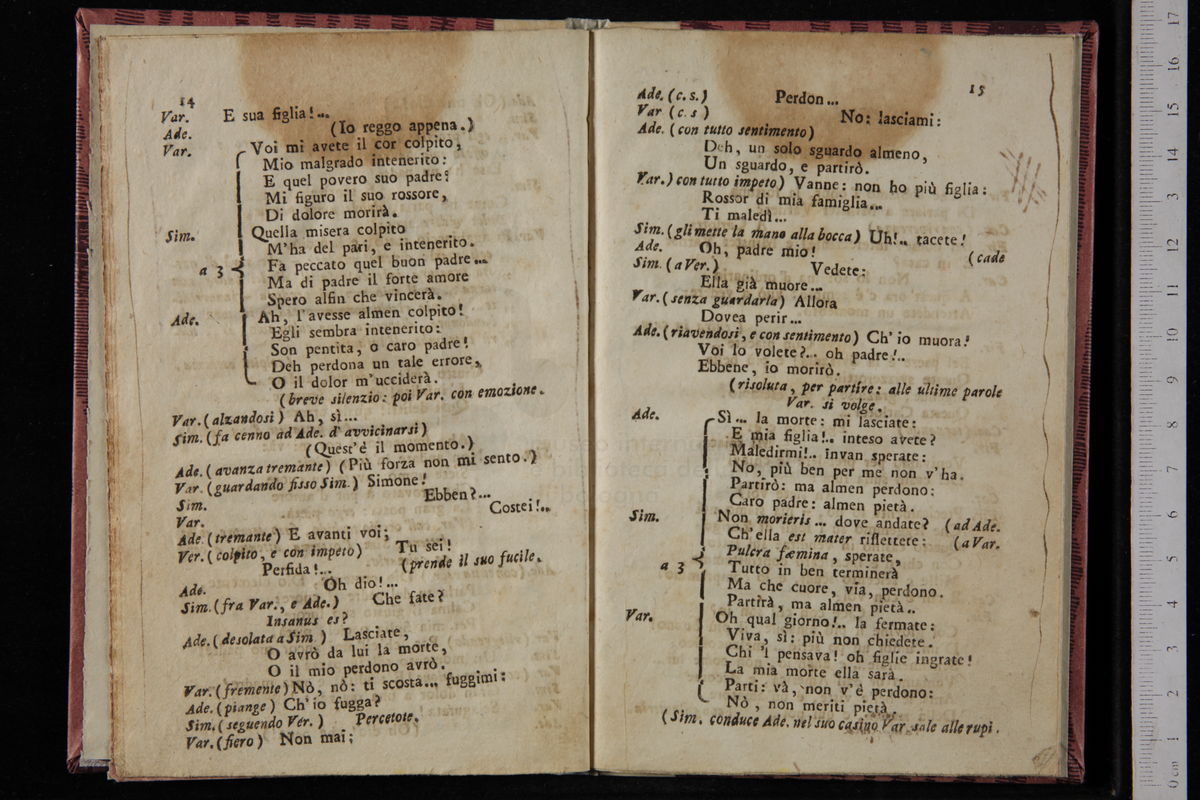 14
Var. E sua figlia!...
Ade. (Io reggo appena.)
Var. Voi mi avete il cor colpito,
Mio malgrado intenerito:
E quel povero suo padre?
Mi figuro il suo rossore,
Di dolore morirà.
Sim. Quella misera colpito
M'ha del pari, e intenerito.
a 3 Fa peccato quel buon padre...
Ma di padre il forte amore
Spero alfin che vincerà.
Ade. Ah, l'avesse almen colpito!
Egli sembra intenerito:
Son pentita, o caro padre!
Deh perdona un tale errore,
O il dolor m'ucciderà.
(breve silenzio: poi Var. con emozione.
Var. (alzandosi) Ah, sì...
Sim. (fa cenno ad Ade. d'avvicinarsi)
(Quest'è il momento.)
Ade. (avanza tremante) (Più forza non mi sento.)
Var. (guardando fisso Sim.) Simone!
Sim. Ebben?...
Var. Costei!..
Ade (tremante) E avanti voi;
Ver. (colpito, e con impeto) Tu sei!
Perfida!... (prende il suo fucile.
Ade. Oh dio!...
Sim. (fra Var., e Ade.) Che fate?
Insanus es?
Ade. (desolata a Sim.) Lasciate,
O avrò da lui la morte,
O il mio perdono avrò.
Var. (fremente) Nò, nò: ti scosta... fuggimi:
Ade. (piange) Ch'io fugga?
Sim. (seguendo Ver.) Percetote.
Var. (fiero) Non mai;
15
Ade. (c. s.) Perdon...
Var (c. s) No: lasciami:
Ade. (con tutto sentimento)
Deh, un solo sguardo almeno,
Un sguardo, e partirò.
Var.) con tutto impeto) Vanne: non ho più figlia:
Rossor di mia famiglia...
Ti maledì...
Sim. (gli mette la mano alla bocca) Uh!.. tacete!
Ade. Oh, padre mio! (cade
Sim. (a Ver.) Vedete:
Ella già muore...
Var. (senza guardarla) Allora
Dovea perir...
Ade. (riavendosi, e con sentimento) Ch'io muora!
Voi lo volete?.. oh padre!..
Ebbene, io morirò.
(risoluta, per partire: alle ultime parole
Var. si volge.
Ade. Sì... la morte: mi lasciate:
E mia figlia!.. inteso avete?
Maledirmi!.. invan sperate:
No, più ben per me non v'ha.
Partirò: ma almen perdono:
Caro padre: almen pietà.
Sim. Non morieris... dove andate? (ad Ade.
Ch'ella est mater riflettete: (a Var.
Pulcra fæmina, sperate,
a 3 Tutto in ben terminerà
Ma che cuore, via, perdono.
Partirà, ma almen pietà..
Var. Oh qual giorno!.. la fermate:
Viva, sì: più non chiedete.
Chi 'l pensava! oh figlie ingrate!
La mia morte ella sarà.
Parti: và, non v'è perdono:
Nò, non meriti pietà.
(Sim. conduce Ade. nel suo casino Var. sale alle rupi.